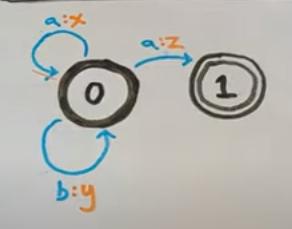 a:x
a:z
0
1
b:y